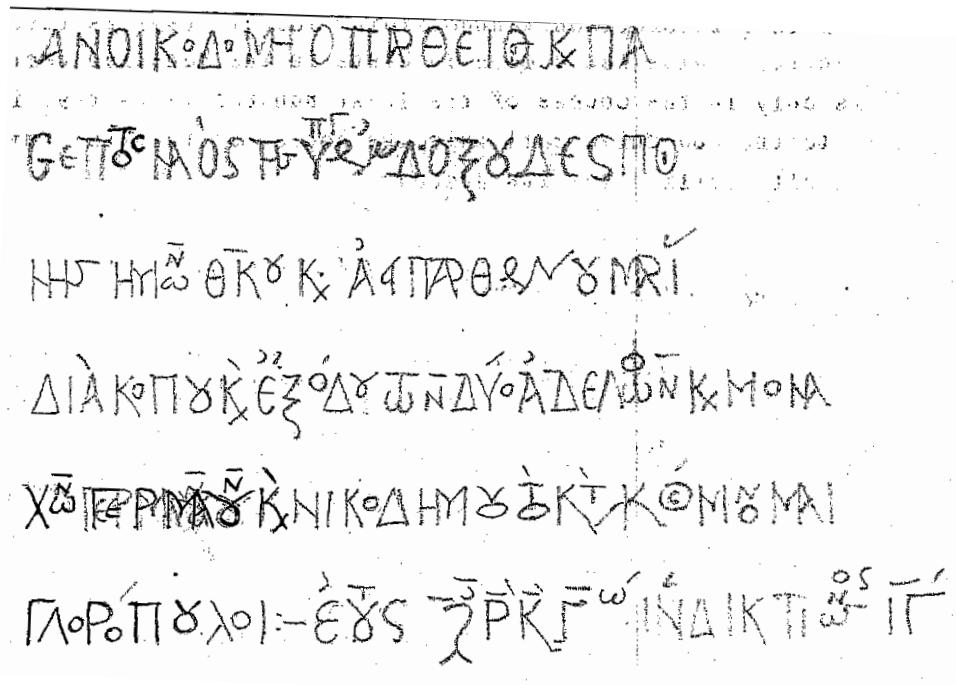 ΑΝΟΙΚΟΔΟΜΗΤΟ ΠΑΡ ΘΕΙΟς Κ ΠΑ
CΕΠΤΟς ΝΑὸς Τῆς ΥΠΕΡΕΝΔΟΞΟΥ ΔΕςΠΟΙ
ΝΗς ΗΜῶΝ ΘΚΟΥ Κ ἈειΠΑΡΘΕΝΟΥ ΜΑΡΙ
ΔΙᾺ ΚΟΠΟΥ Κ ἘΞΌΔΟΥ ΤῶΝ ΔΎΟ ἈΔΕΛΦῶΝ Κ ΜΟΝΑ
ΧῶΝ ΓΕΡΜΑΝΟΥ Κ ΝΙΚΟΔΗΜΟΥ ΜΑΙ
ΓΛΟΡΌΠΟΥΛΟΙ:– ἔΤΟΥς ΖΡΚΓώ ἸΝΔΙΚΤΙῶΝΟς ΙΓ